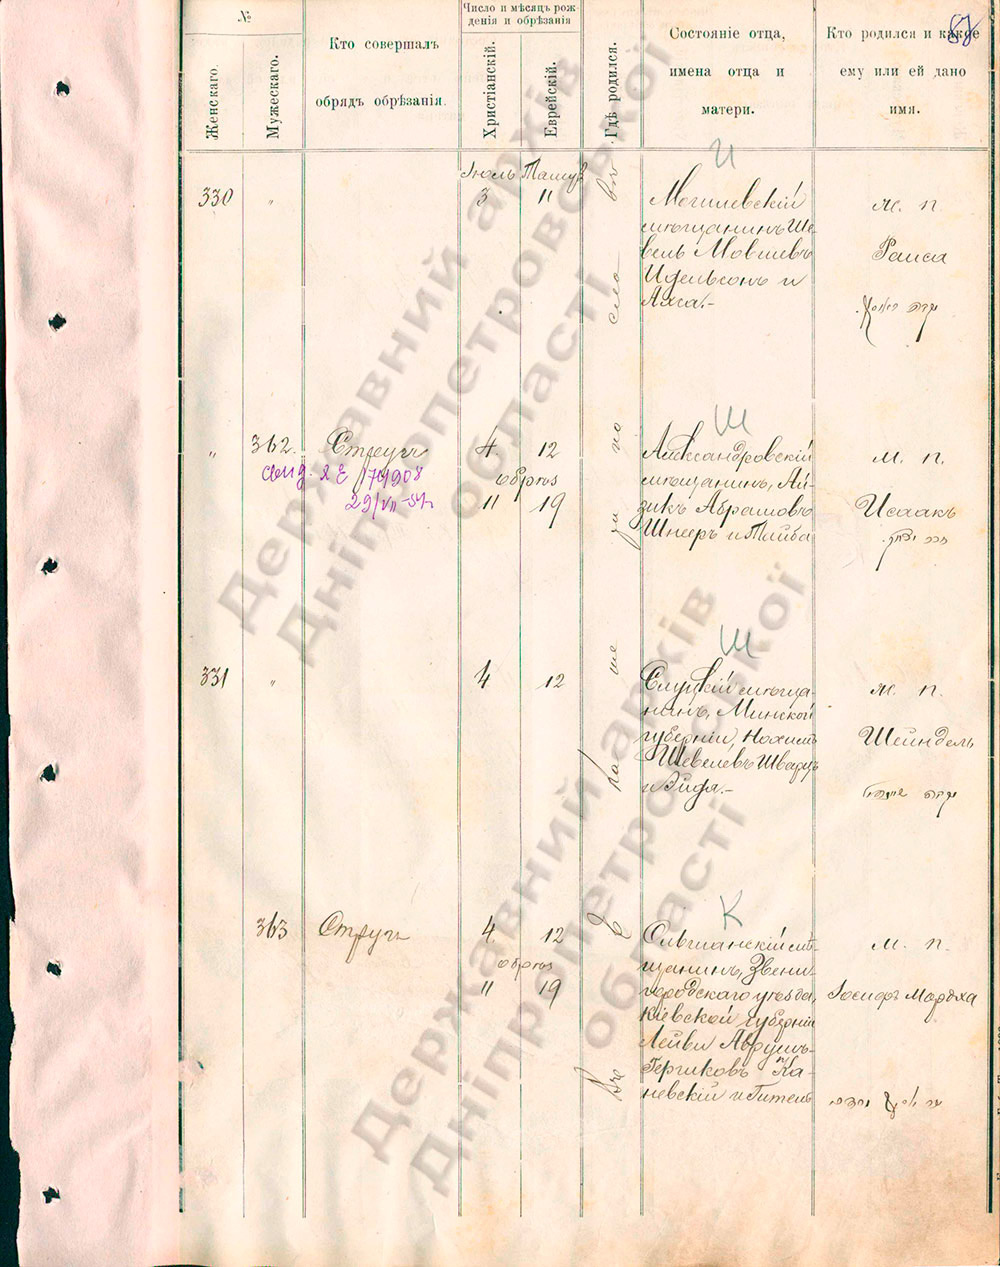 №
Женскаго.
Мужескаго.
Кто совершалъ
обрядъ обрѣзанія.
Число и мѣсяцъ рож
денія и обрѣзанія
Христіанскій.
Еврейскій.
Гдѣ родился.
Состояніе отца,
имена отца и
матери.
Кто родился и какое
ему или ей дано
имя.
И
Іюль Тамуз
330 " 3 11
Могилевскій
мѣщанинъ Ше
вель Мовшевъ
Идельсонъ и
Аха.-
м. п.
Раиса
Ш
" 362. Стругъ 4. 12
обрѣз
11 19
29/VII-54г
Александровскій
мѣщанинъ, Ай
зикъ Абрамовъ
Шнееръ и Тайба
м. п.
Исаакъ
Ш
331 " 4 12
Слуцкій мѣща-
нинъ, Минской
губерніи, Нохимъ
Шевелевъ Шварцъ
м. п.
Шейндель
К
363 Стругъ 4. 12
обрѣз
11 19
Ольшанскій мѣ
щанинъ, Звени
городскаго уѣзда,
Кіевской губерніи
Лейви Аврумъ-
Гершковъ Ка-
невскій и Гитель
м. п.
Іосифъ Мордха
Державний архів
Дніпропетровської
області
Державний архів
Дніпропетровської
області